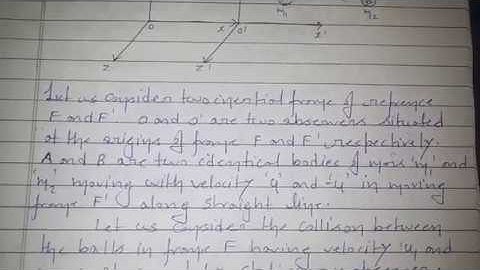 m1 m2
0 x 0' x'
z z'
Let us consider two inertial frame of refrence
F and F' 0 and 0' are two observers situated
at the origins of frame F and F' respectively.
A and B are two identical bodies of mass 'm1' and
'm2' moving with velocity 'u' and '-u' in moving
frame F' along straight line.
Let us consider the collison between
the balls in frame F having velocity 'u1 and